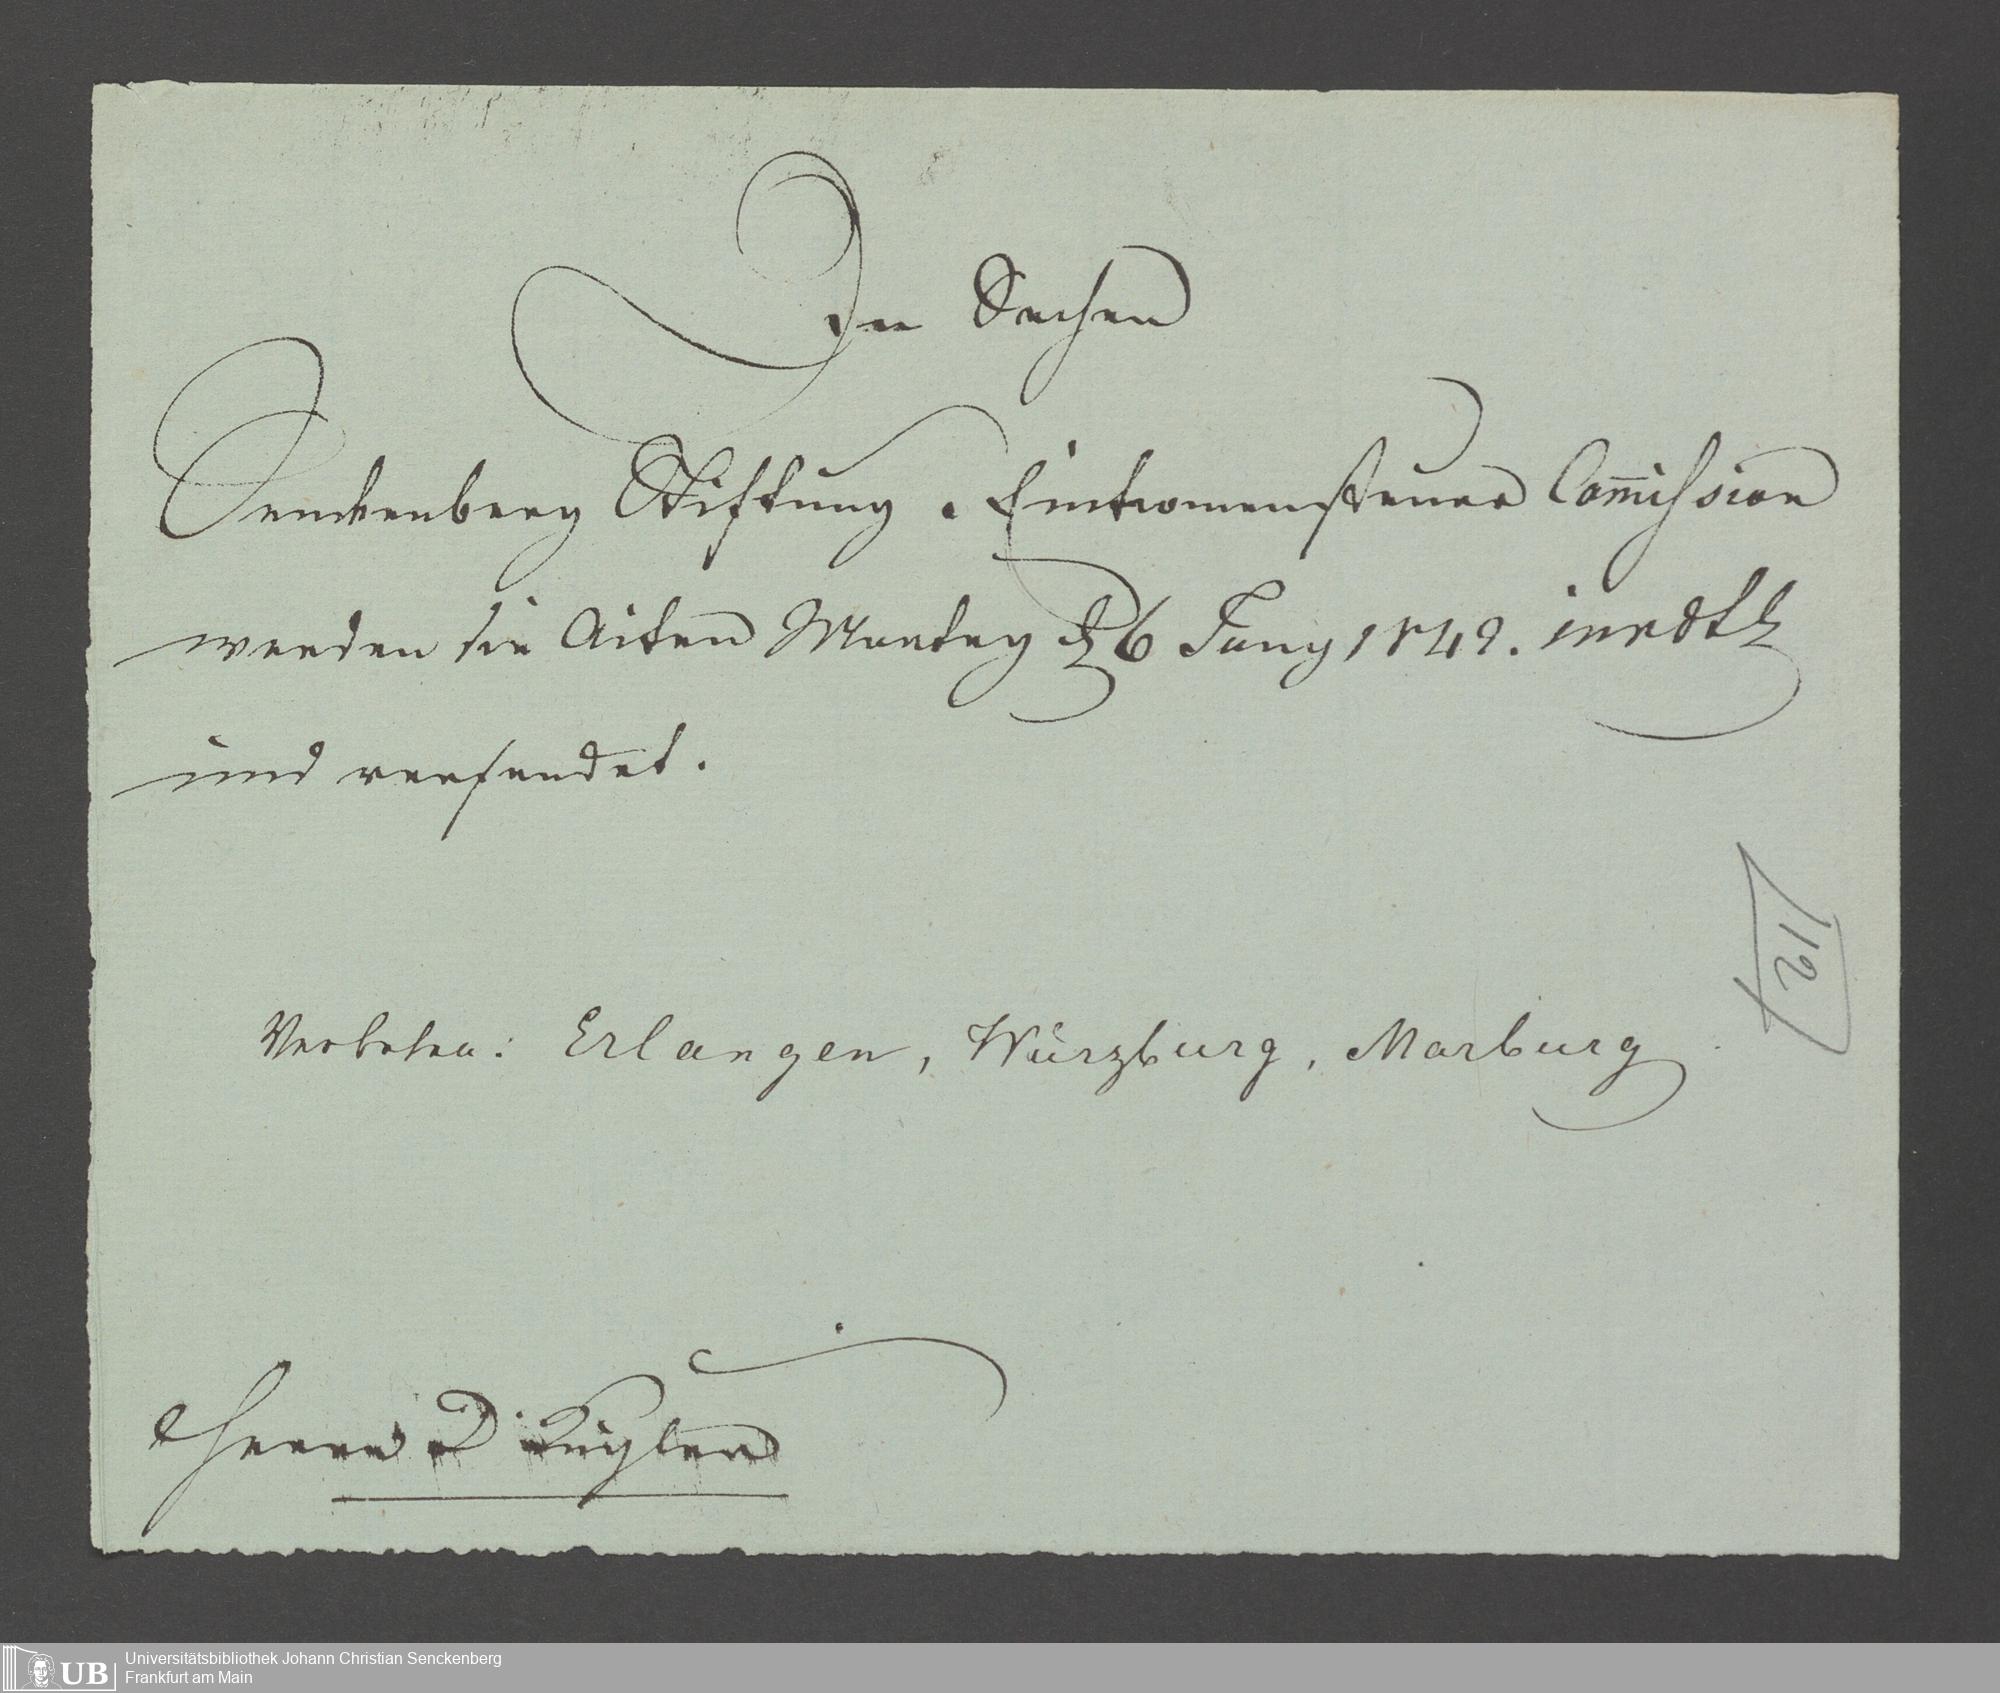 In Sachen
Senckenberg Stiftung c. Einkommensteuer Commission
werden die Acten Montag d. 6 Juny 1842.
und versendet.
112
Verbeten: Erlangen, Würzburg, Marburg
Herrn D.
UB
Universitätsbibliothek Johann Christian Senckenberg
Frankfurt am Main